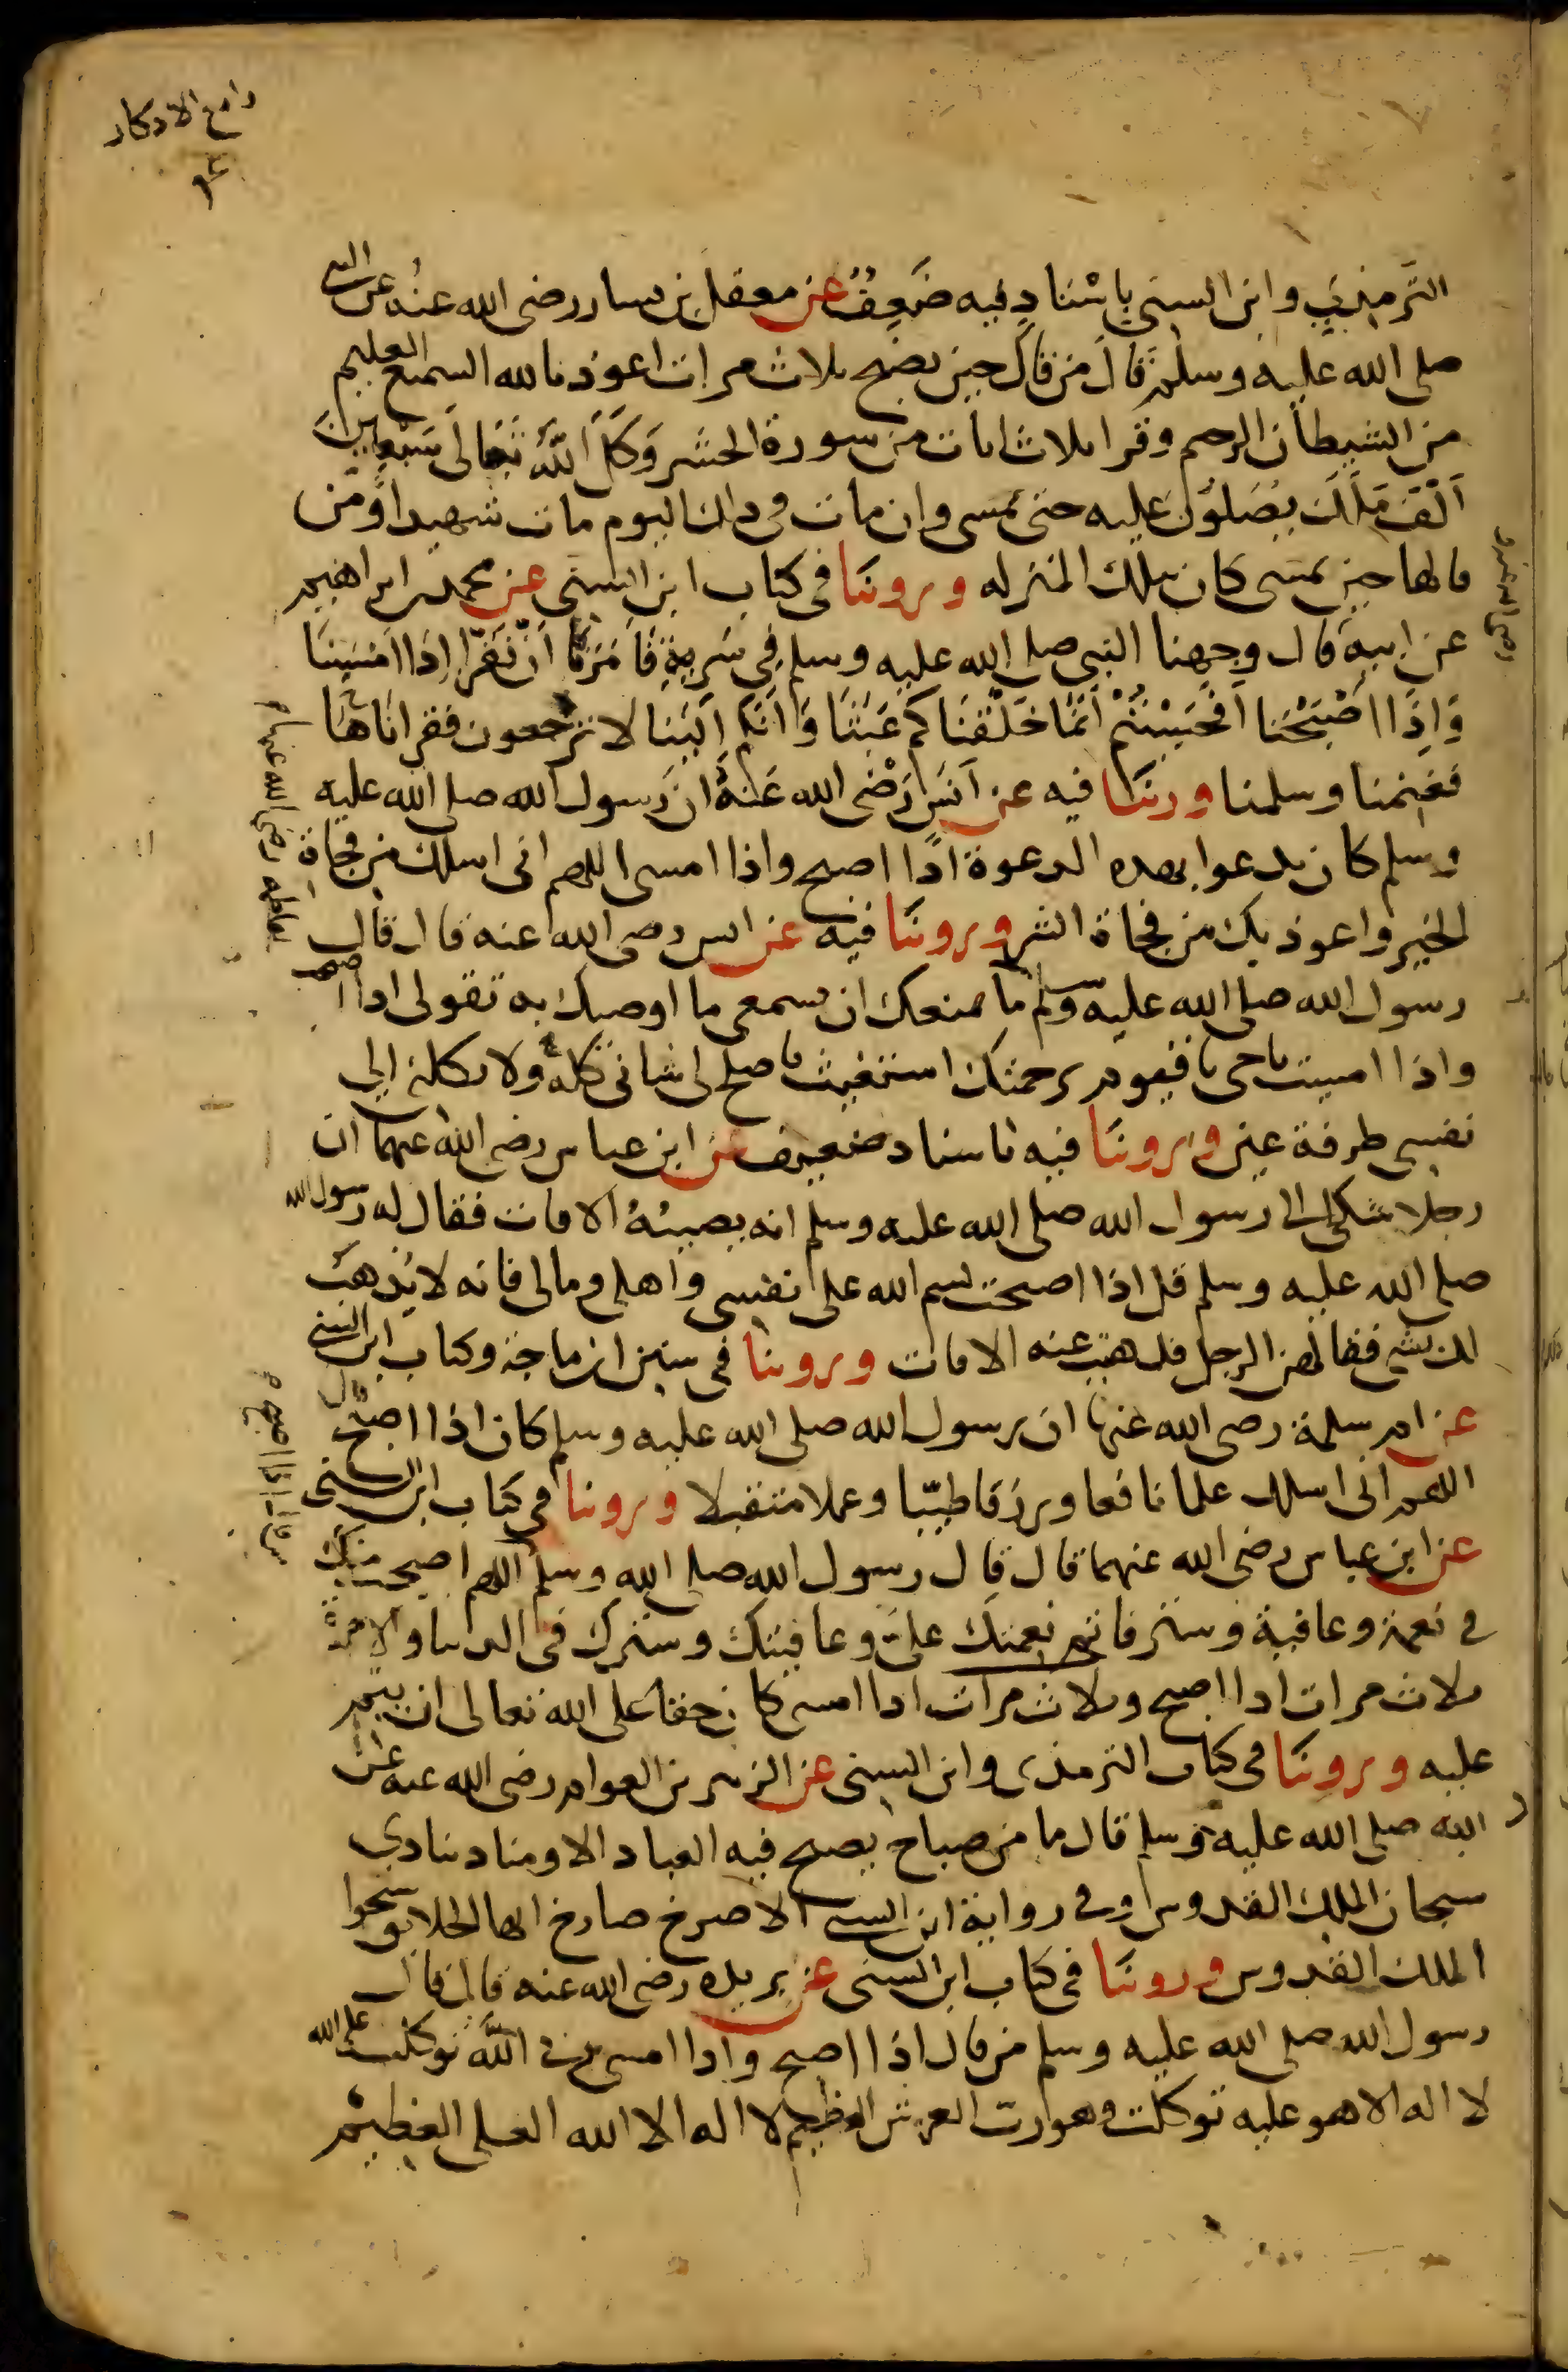 رابع الاذكار
الترمذي وابن السني باسناد فيه ضعف عن معقل بن يسار رضى الله عنه عن النبي
صلى الله عليه وسلم قال من قال حين يصبح ثلاث مرات اعوذ بالله السميع العليم
من الشيطان الرجيم وقرا ثلاث ايات من سورة الحشر وكل الله تعالى سبعين
الف ملك يصلون عليه حتى يمسى وان مات فى ذلك اليوم مات شهيدا ومن
قالها حين يمسى كان بتلك المنزله وروينا فى كتاب ابن السني عن محمد بن ابراهيم
عن ابيه قال وجهنا النبي صلى الله عليه وسلم في سرية فامرنا ان نقرا اذا امسينا
واذا اصبحنا افحسبتم انما خلقناكم عبثا وانكم الينا لا ترجعون فقراناها
فغنمنا وسلمنا وروينا فيه عن انس رضى الله عنه ان رسول الله صلى الله عليه
وسلم كان يدعوا بهذه الدعوة اذا اصبح واذا امسى اللهم انى اسلك من فجاة
الخير واعوذ بك من فجاة الشر وروينا فيه عن انس رضى الله عنه قال قال
لفاطمه رضى الله عنها
رسول الله صلى الله عليه وسلم ما يمنعك ان تسمعى ما اوصيك به تقولى اذا اصبحت
واذا امسيت يا حى يا قيوم برحمتك استغيث فاصلح لى شانى كله ولا تكلنى الى
نفسى طرفة عين وروينا فيه باسناد ضعيف عن ابن عباس رضى الله عنهما ان
رجلا شكى الى رسول الله صلى الله عليه وسلم انه يصيبه الافات فقال له رسول الله
صلى الله عليه وسلم قل اذا اصبحت بسم الله على نفسى واهلى ومالى فانه لا يذهب
لك شى فقالهن الرجل فذهبت عنه الافات وروينا فى سنن ابن ماجة وكتاب ابن السني
عن ام سلمة رضى الله عنها ان رسول الله صلى الله عليه وسلم كان اذا اصبح قال
اللهم انى اسلك علما نافعا ورزقا طيبا وعملا متقبلا وروينا فى كتاب ابن السنى
عن ابن عباس رضى الله عنهما قال قال رسول الله صلى الله وسلم اللهم اصبحت منك
من قال اذا اصبح
في نعمة وعافية وستر فاتم نعمتك على وعافيتك وسترك فى الدنيا والاخرة
ثلاث مرات اذا اصبح وثلاث مرات اذا امسى كان حقا على الله تعالى ان يتم
عليه وروينا فى كتاب الترمذى وابن السنى عن الزبير بن العوام رضى الله عنه عن
النبي صلى الله عليه وسلم قال ما من صباح يصبح فيه العباد الا ومناد ينادي
سبحان الملك القدوس وفى رواية ابن السني الا صرخ صارخ ايها الخلايق سبحوا
الملك القدوس وروينا فى كتاب ابن السنى عن بريده رضى الله عنه قال قال
رسول الله صلى الله عليه وسلم من قال اذا اصبح واذا امسى ربي الله توكلت على الله
لا اله الا هو عليه توكلت وهو رب العرش العظيم لا اله الا الله العلى العظيم